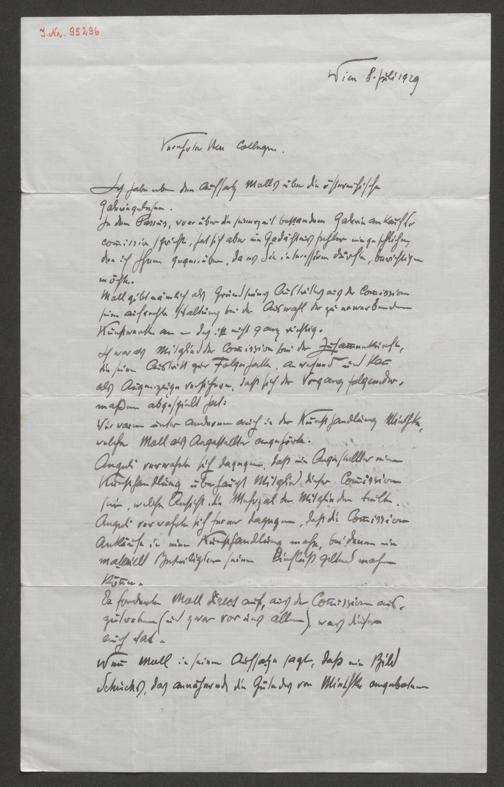 J. Nr. 95296
Wien 8. Juli 1929
Verehrter Herr Collega.
Ich habe eben den Aufsatz Molls über die österreichische
Galerie gelesen.
In dem Passus, wo er über die seinerzeit bestandene Galerie Ankaufs-
comission spricht, hat sich aber ein Gedächtnisfehler eingeschlichen,
den ich Ihnen gegenüber, da es Sie interessieren dürfte, berichtigen
möchte.
Moll gibt nämlich als Grund seines Austrittes aus der Comission
seine aufrechte Haltung bei der Auswahl der zu erwerbenden
Kunstwerke an – das ist nicht ganz richtig.
Ich war als Mitglied der Comission bei der Zusammenkunft,
die seinen Austritt zur Folge hatte, anwesend und kann
als Augenzeuge versichern, daß sich der Vorgang folgender-
maßen abgespielt hat:
Wir waren unter anderem auch in der Kunsthandlung Miethke,
welcher Moll als Angestellter angehörte.
Angeli verwahrte sich dagegen, daß ein Angestellter einer
Kunsthandlung überhaupt Mitglied dieser Comission
sei, welche Ansicht die Mehrzal der Mitglieder teilte.
Angeli verwahrte sich ferner dagegen, daß die Comission
Ankäufe in einer Kunsthandlung mache, bei denen ein
materiell Beteiligter seinen Einfluß geltend machen
könne.
Er forderte Moll direct auf, aus der Comission aus-
zutreten (und zwar vor uns allen), was dieser
auch tat.
Wenn Moll in seinem Aufsatze sagt, daß ein Bild
Schuchs, das annähernd die Gulden von Miethke angeboten